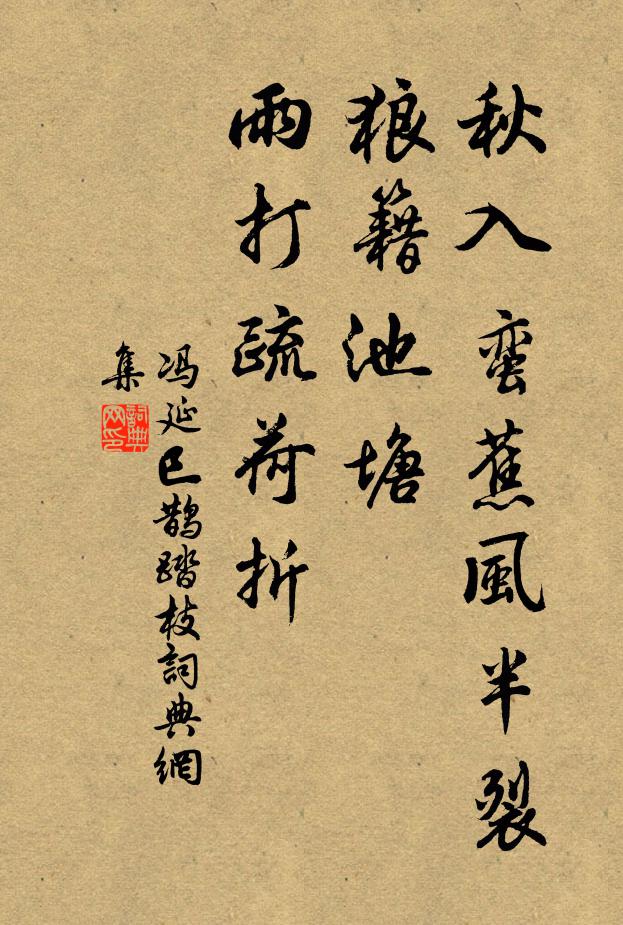 秋入蛮蕉風半裂
狼籍池塘
雨打疏荷折
冯延巳鹊踏枝詞典網
集
詞典网印